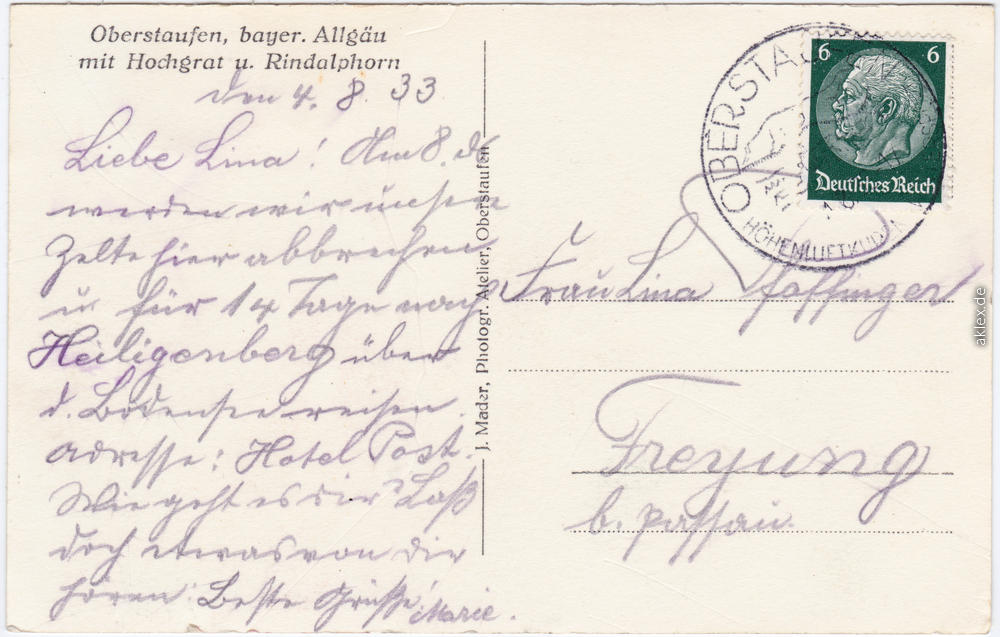 Oberstaufen, bayer. Allgäu
mit Hochgrat u. Rindalphorn
den 4. 8. 33
Liebe Lina! Am 8. ds
werden wir unsere
Zelte hier abbrechen
u. für 14 Tage nach
Heiligenberg über
d. Bodensee reisen.
Adresse: Hotel Post.
Wie geht es dir? Laß
doch etwas von dir
hören. Beste Grüße, Marie.
J. Mader, Photogr. Atelier, Oberstaufen
OBERSTAU
HÖHENLUFTKUR
6 6
Deutsches Reich
Frau Lina
Freyung
b. Passau.
aklex.de